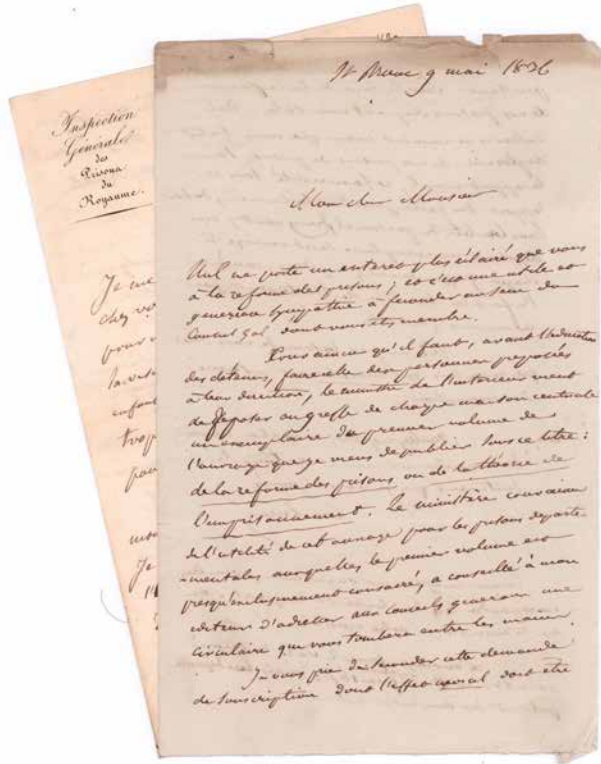 St Brieuc 9 mai 1836
Mon cher Monsieur
Nul ne porte un interet plus éclairé que vous
à la reforme des prisons; et c'est une utile et
genereuse sympathie à feconder au sein du
Conseil Gal dont vous etes membre.
Convaincu qu'il faut, avant l'education
des detenus, faire celle des personnes preposées
à leur direction, le ministre de l'interieur vient
de deposer au greffe de chaque maison centrale
un exemplaire du premier volume de
l'ouvrage que je viens de publier sous ce titre:
de la reforme des prisons ou de la théorie de
l'emprisonnement. Le ministère convaincu
de l'utilité de cet ouvrage pour les prisons departe-
-mentales auxquelles le premier volume est
presqu'exclusivement consacré, a conseillé à mon
editeur d'adresser aux conseils generaux une
circulaire qui vous tombera entre les mains.
Je vous prie de seconder cette demande
de souscription dont l'effet moral doit etre
Inspection
Générale
des
Prisons
du
Royaume.
Je me
chez vo
pour
la vis
enfant
trop
pou
Je